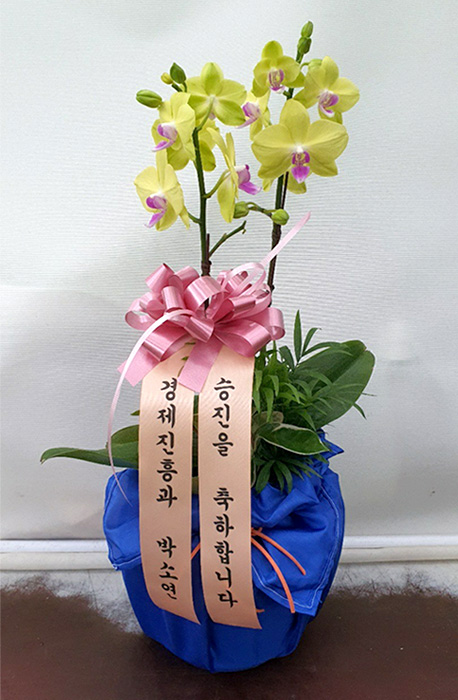 승진을 축하합니다
경제진흥과 박소연